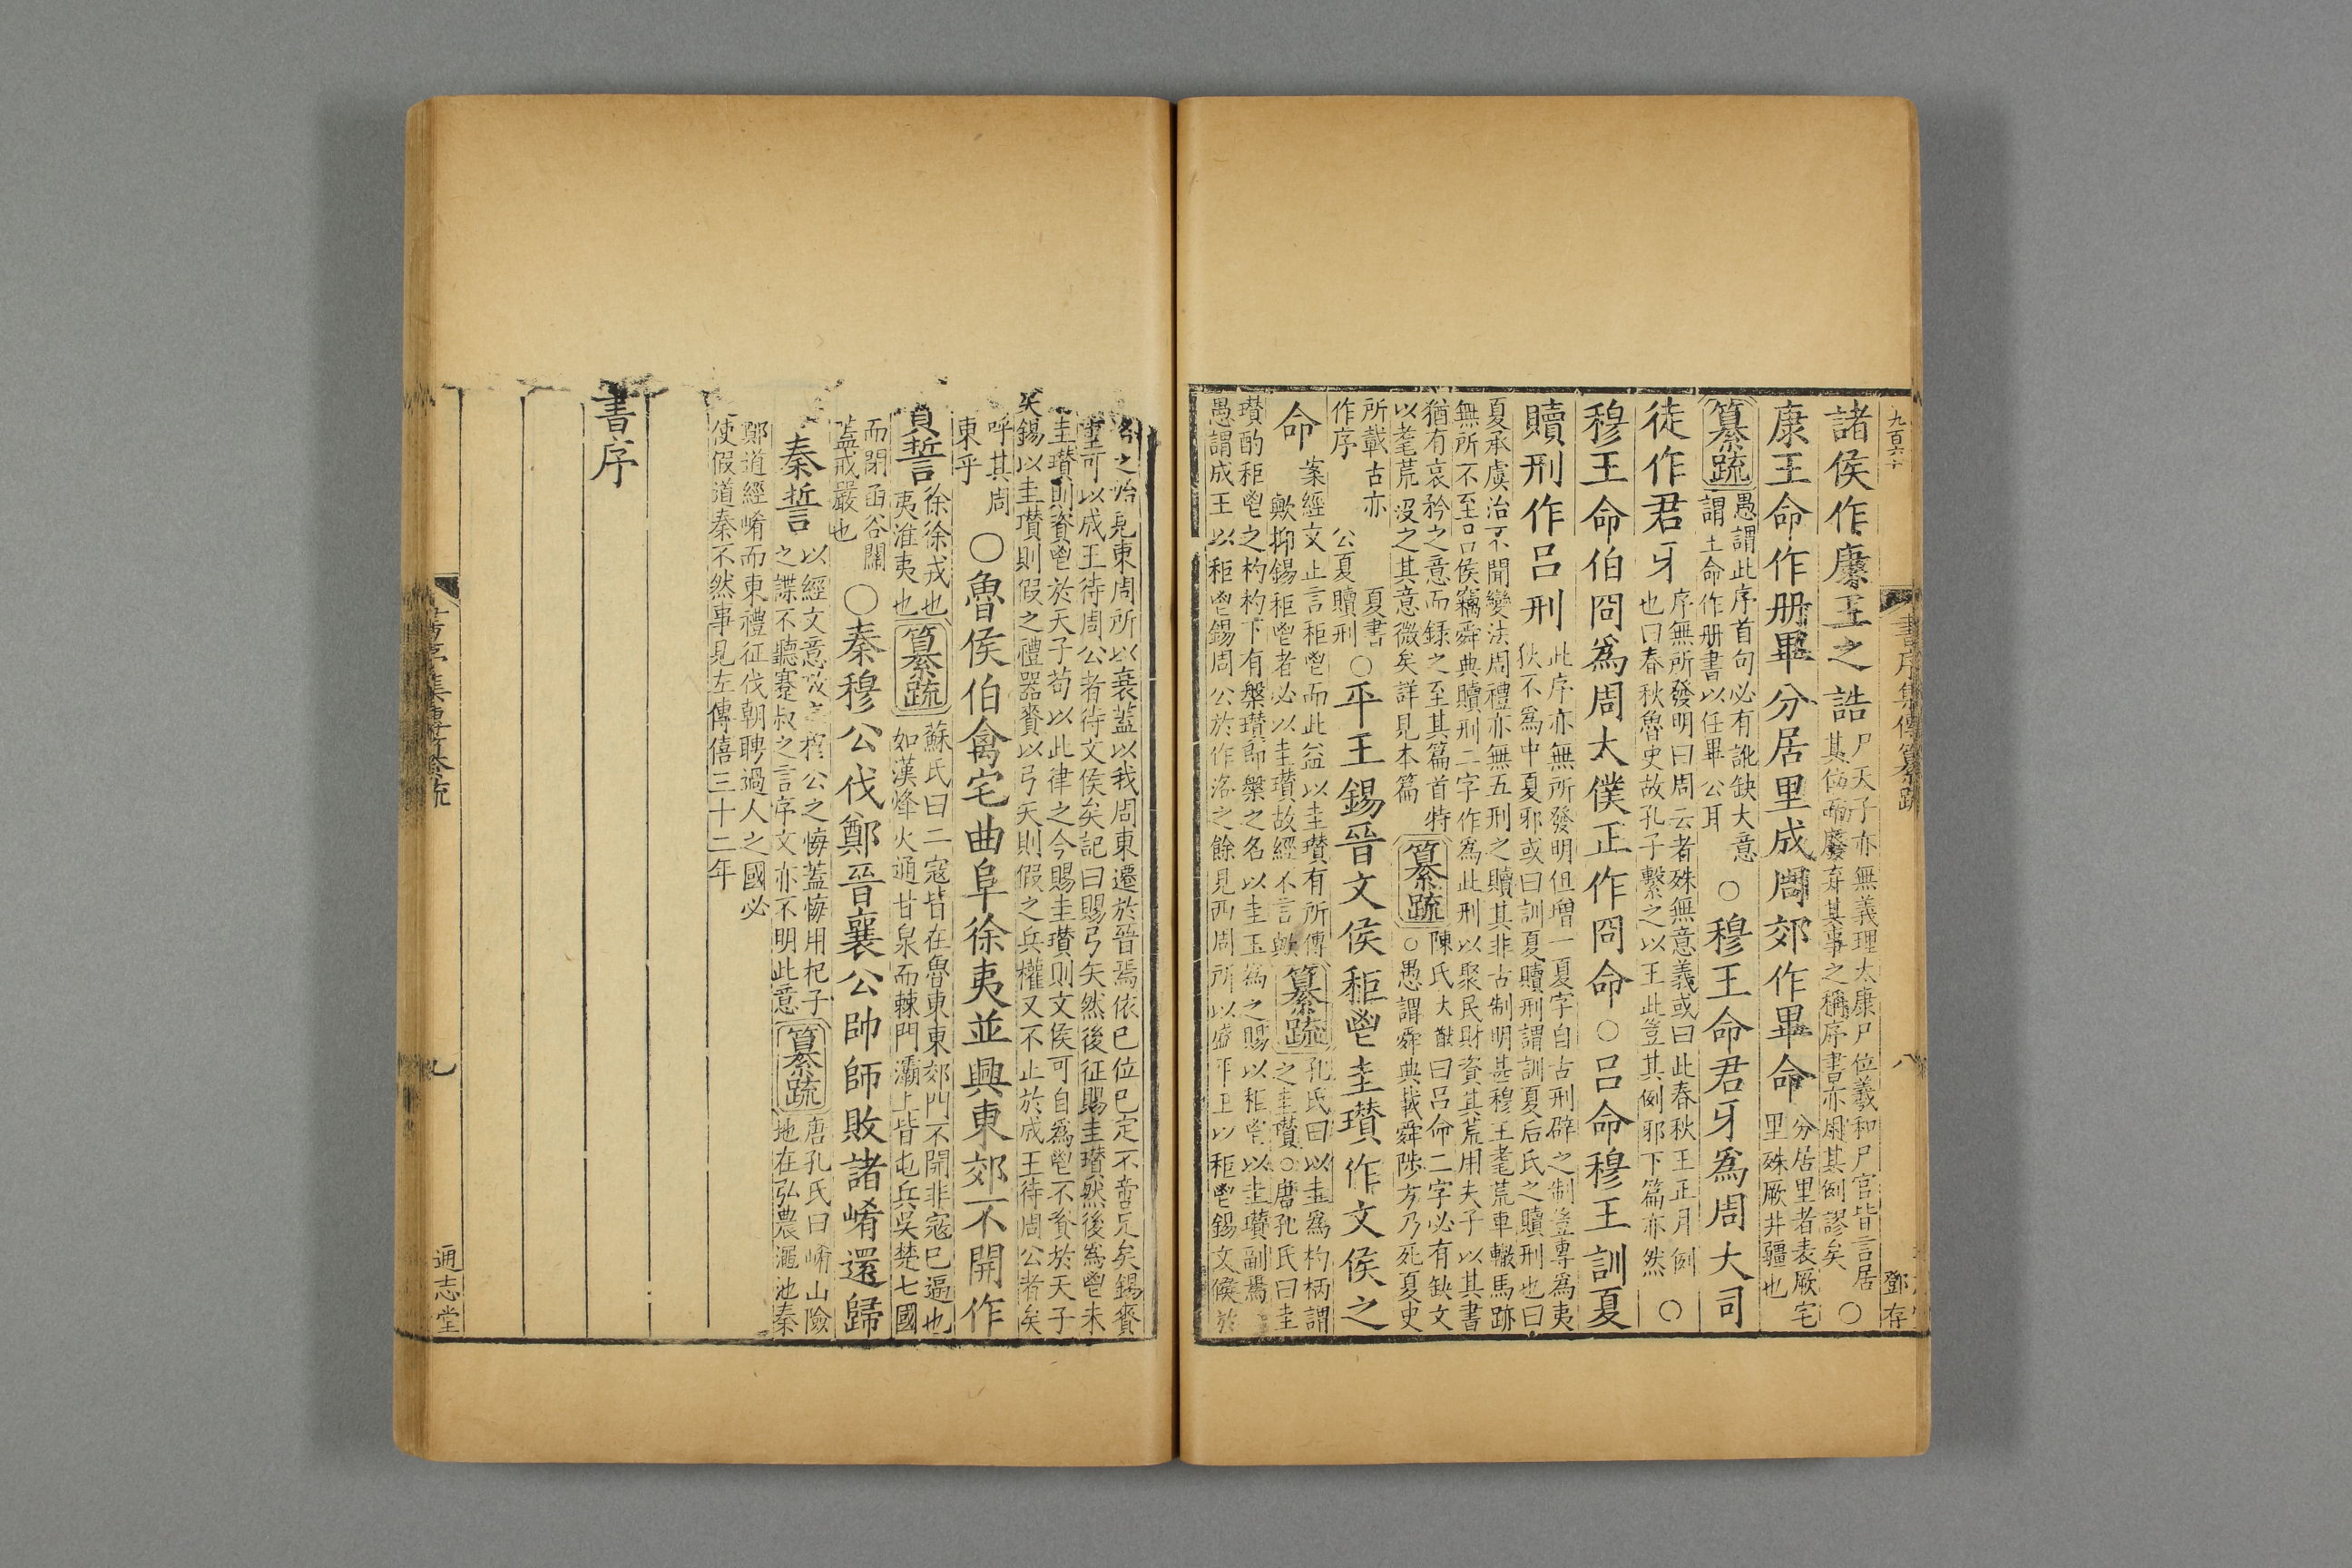 九百六十
書序集傳纂疏
八
鄧存
諸侯作康王之誥尸天子亦無義理太康尸位羲和尸官皆言居
其位而廢弃其事之稱序書亦用其例謬矣○
康王命作册畢分居里成周郊作畢命分居里者表厥宅
里殊厥井疆也
纂疏愚謂此序首句必有訛缺大意
謂王命作册書以任畢公耳○穆王命君牙爲周大司
徒作君牙序無所發明曰周云者殊無意義或曰此春秋王正月例
也曰春秋魯史故孔子繫之以王此豈其例邪下篇亦然○
穆王命伯冏爲周太僕正作冏命○呂命穆王訓夏
贖刑作呂刑此序亦無所發明但增一夏字自古刑辟之制豈專爲夷
狄不爲中夏邪或曰訓夏贖刑謂訓夏后氏之贖刑也曰
夏承虞治不聞變法周禮亦無五刑之贖其非古制明甚穆王耄荒車轍馬跡
無所不至呂侯竊舜典贖刑二字作爲此刑以聚民財資其荒用夫子以其書
猶有哀矜之意而録之至其篇首特
以耄荒没之其意微矣詳見本篇纂疏陳氏大猷曰呂命二字必有缺文
○愚謂舜典載舜陟方乃死夏史
所載古亦
作序
夏書
公夏贖刑○平王錫晉文侯秬鬯圭瓚作文侯之
命案經文止言秬鬯而此益以圭瓚有所傳
歟抑錫秬鬯者必以圭瓚故經不言歟纂疏孔氏曰以圭爲杓柄謂
之圭瓚○唐孔氏曰圭
瓚酌秬鬯之杓杓下有槃瓚即槃之名以圭玉為之賜以秬鬯以圭瓚副焉
愚謂成王以秬鬯錫周公於作洛之餘見西周所以盛平王以秬鬯錫文侯於
之治見東周所以衰蓋以我周東遷於晉焉依已位已定不啻足矣錫賚
圭可以成王待周公者待文侯矣記曰賜弓矢然後征賜圭瓚然後爲鬯未
圭瓚則資鬯於天子苟以此律之今賜圭瓚則文侯可自爲鬯不資於天子
矣錫以圭瓚則假之禮器賚以弓矢則假之兵權又不止於成王待周公者矣
呼其周
東乎○魯侯伯禽宅曲阜徐夷並興東郊不開作
費誓徐徐戎也
夷淮夷也纂疏蘇氏曰二寇皆在魯東東郊門不開非寇已逼也
如漢烽火通甘泉而棘門灞上皆屯兵吳楚七國
而閉函谷關
蓋戒嚴也○秦穆公伐鄭晉襄公帥師敗諸崤還歸
秦誓以經文意攷之穆公之悔蓋悔用杞子
之諜不聽蹇叔之言序文亦不明此意纂疏唐孔氏曰崤山險
地在弘農澠池秦
鄭道經崤而東禮征伐朝聘過人之國必
使假道秦不然事見左傳僖三十二年
書序
書序集傳纂疏
九
通志堂